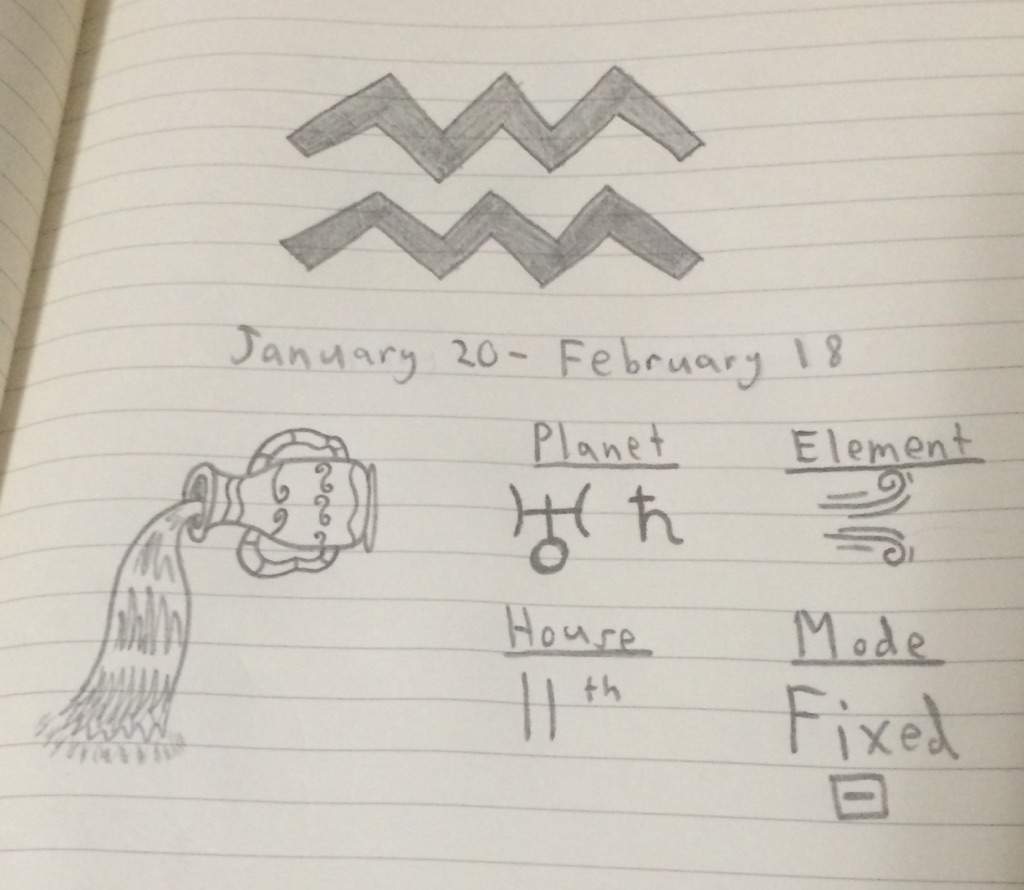 January 20 - February 18
Planet
Element
♅ ♄
House
Mode
11th
Fixed